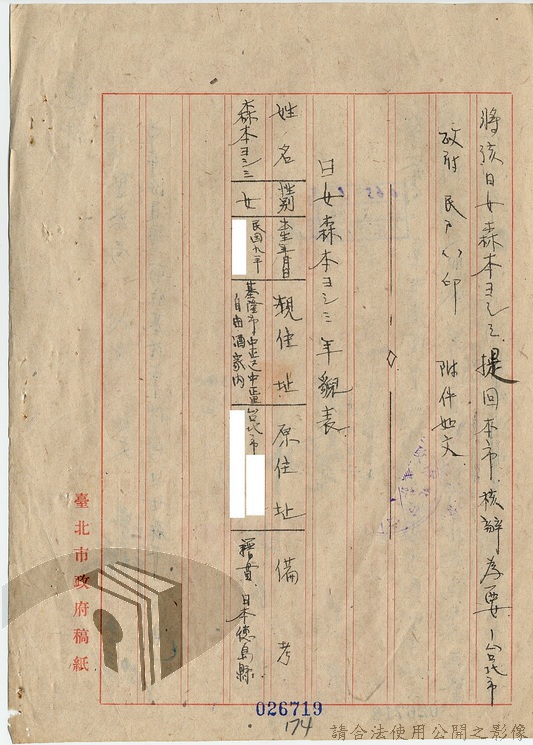 將該日女森本ヨシミ提回本市核辦為要 台北市
政府 民戶 印 附件如文
日女森本ヨシミ年貌表
姓名 性別 出生年月日 現住址 原住址 備考
森本ヨシミ 女 民國九年 基隆市中正區中正區自由酒家內 台北市 籍貫 日本德島縣
臺北市政府稿紙
026719
174
請合法使用公開之影像